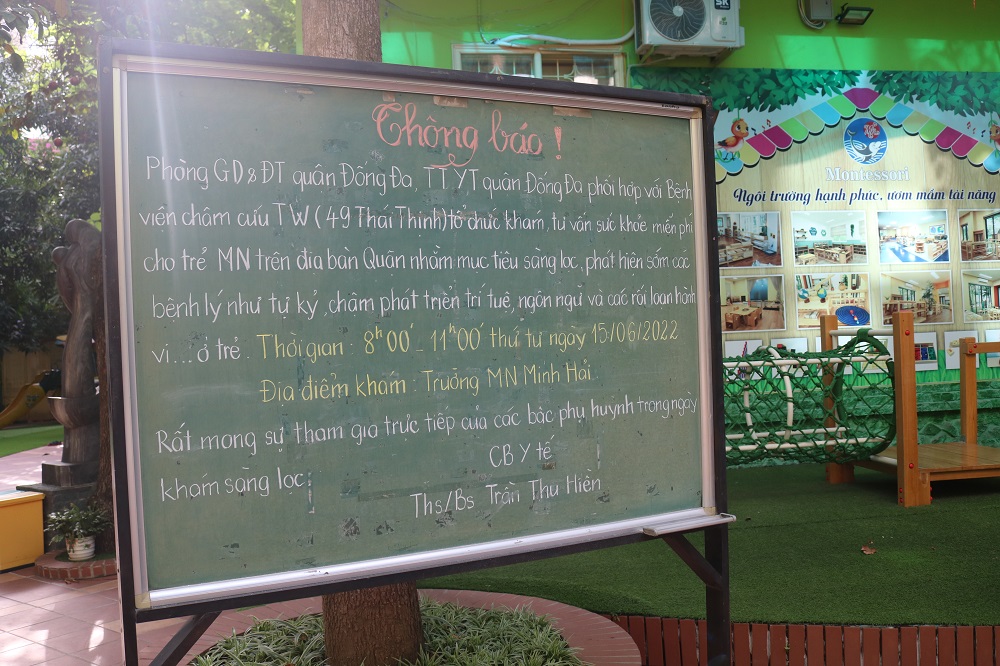 Thông báo !
Phòng GD&ĐT quận Đống Đa, TTYT quận Đống Đa phối hợp với Bệnh
viện châm cứu TW (49 Thái Thịnh) tổ chức khám, tư vấn sức khỏe miễn phí
cho trẻ MN trên địa bàn Quận nhằm mục tiêu sàng lọc, phát hiện sớm các
bệnh lý như tự kỷ, chậm phát triển trí tuệ, ngôn ngữ và các rối loạn hành
vi... ở trẻ. Thời gian : 8h00' - 11h00' thứ tư ngày 15/06/2022
Địa điểm khám : Trường MN Minh Hải.
Rất mong sự tham gia trực tiếp của các bậc phụ huynh trong ngày
khám sàng lọc!
CB Y tế
Ths/Bs Trần Thu Hiền
Montessori
Ngôi trường hạnh phúc, ươm mầm tài năng
SK